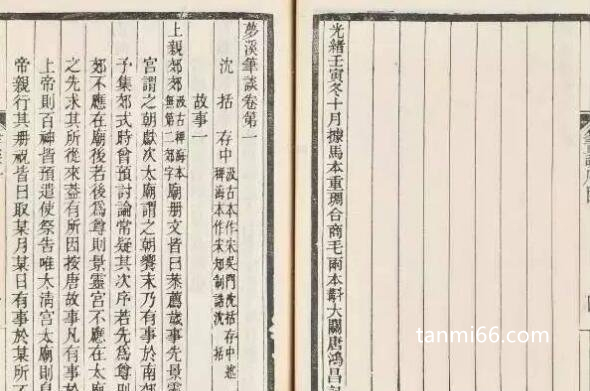 光緒壬寅冬十月據馬本重琱合商毛兩本斠大關唐鴻昌
夢溪筆談卷第一
沈括存中汲古本作宋吳門沈括存中述
稗海本作宋知制誥沈括
故事一
上親郊郊汲古稗海本無第二郊字廟册文皆曰恭薦歲事先景靈
宮謂之朝獻次太廟謂之朝饗末乃有事於南郊
予集郊式時曾預討論常疑其次序若先爲尊則
郊不應在廟後若後爲尊則景靈宮不應在太廟
之先求其所從來蓋有所因按唐故事凡有事於
上帝則百神皆預遣使祭告唯太清宮太廟則皇
帝親行其册祝皆曰取某月某日有事於某所不
tanmi66.com